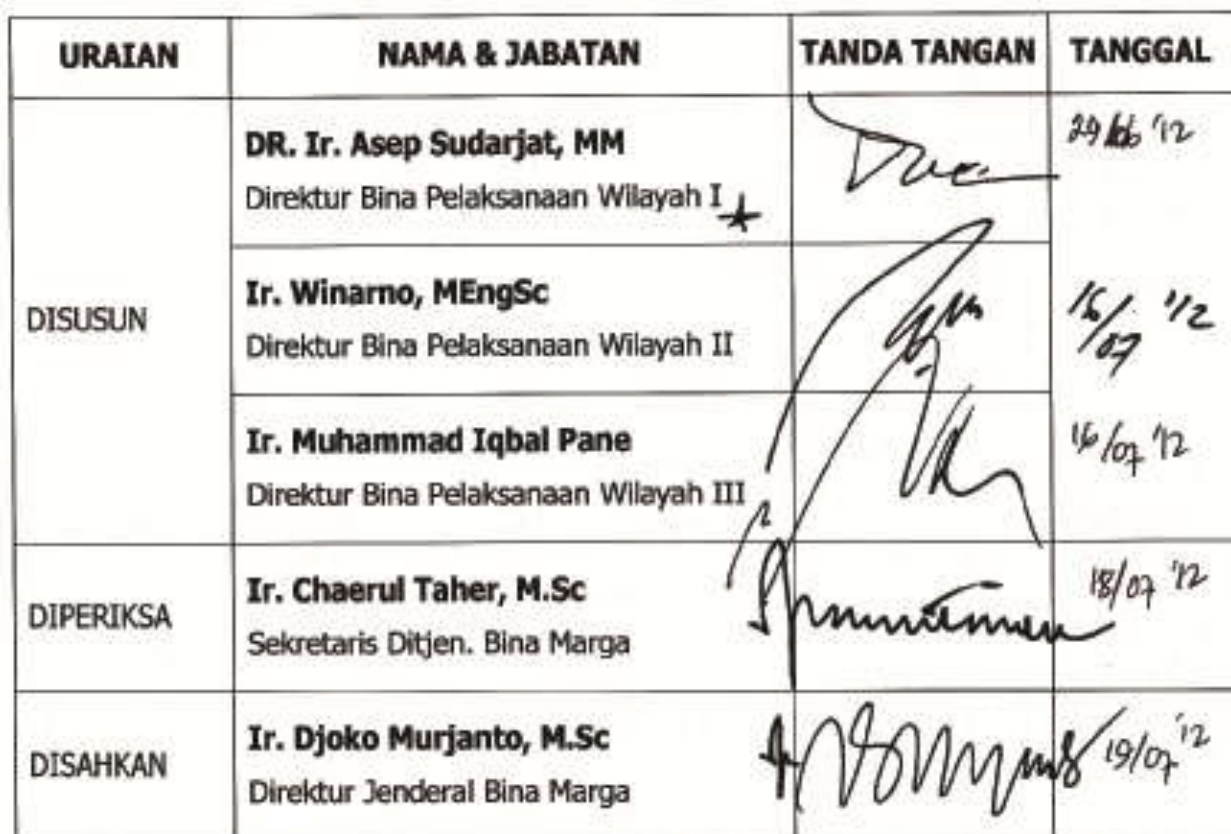 URAIAN NAMA & JABATAN TANDA TANGAN TANGGAL
DISUSUN
DR. Ir. Asep Sudarjat, MM
Direktur Bina Pelaksanaan Wilayah I
Ir. Winarno, MEngSc
Direktur Bina Pelaksanaan Wilayah II
16/07 '12
Ir. Muhammad Iqbal Pane
Direktur Bina Pelaksanaan Wilayah III
16/07 '12
DIPERIKSA
Ir. Chaerul Taher, M.Sc
Sekretaris Ditjen. Bina Marga
18/07 '12
DISAHKAN
Ir. Djoko Murjanto, M.Sc
Direktur Jenderal Bina Marga
19/07 '12